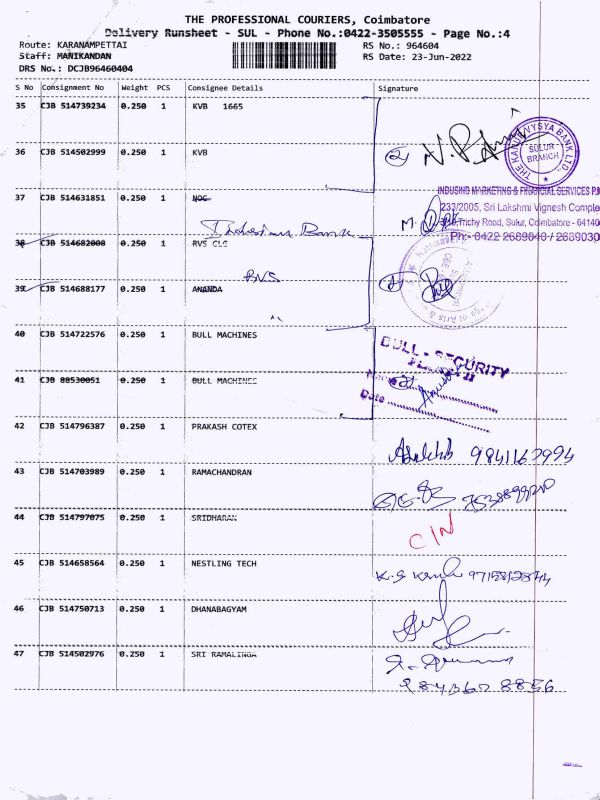 THE PROFESSIONAL COURIERS, Coimbatore
Delivery Runsheet - SUL - Phone No.:0422-3505555 - Page No.:4
Route: KARANAMPETTAI RS No.: 964604
Staff: MANIKANDAN RS Date: 23-Jun-2022
DRS No.: DCJB96460404
S No Consignment No Weight PCS Consignee Details Signature
35 CJB 514739234 0.250 1 KVB 1665
36 CJB 514502999 0.250 1 KVB
THE KARUR VYSYA BANK LTD.
SULUR
BRANCH
37 CJB 514631851 0.250 1 NOC
INDUSIND MARKETING & FINANCIAL SERVICES P.
233/2005, Sri Lakshmi Vignesh Comple
Trichy Road, Sulur, Coimbatore - 64140
Ph:- 0422 2689040 / 2689030
Bank
38 CJB 514682008 0.250 1 RVS CLG
BVS
39 CJB 514688177 0.250 1 ANANDA
40 CJB 514722576 0.250 1 BULL MACHINES
BULL - SECURITY
41 CJB 88530051 0.250 1 BULL MACHINES
Date
42 CJB 514796387 0.250 1 PRAKASH COTEX
43 CJB 514703989 0.250 1 RAMACHANDRAN
44 CJB 514797075 0.250 1 SRIDHARAN
C/N
45 CJB 514658564 0.250 1 NESTLING TECH
46 CJB 514750713 0.250 1 DHANABAGYAM
47 CJB 514502976 0.250 1 SRI RAMALINGA